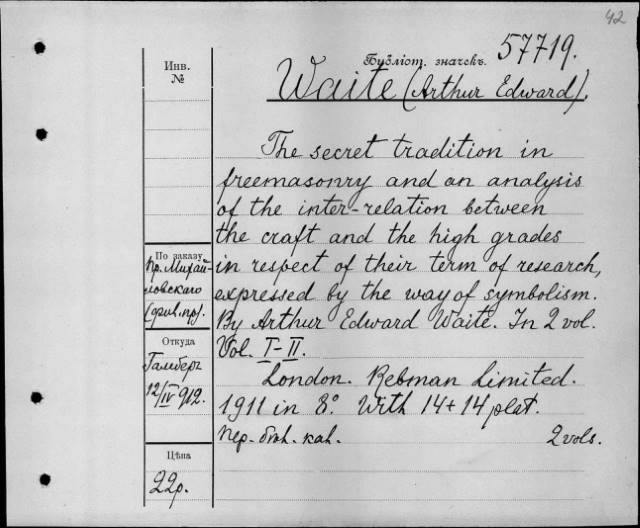 42
Инв.
№
Библіот. значекъ. 57719.
Waite (Arthur Edward).
The secret tradition in
freemasonry and an analysis
of the inter-relation between
the craft and the high grades
in respect of their term of research,
expressed by the way of symbolism.
By Arthur Edward Waite. In 2 vol.
Vol. I-II.
London. Rebman Limited.
1911 in 8°. With 14+14 plat.
2 vols.
По заказу
пр. Михай-
ловскаго
Откуда
12/IV 912.
Цѣна
22р.